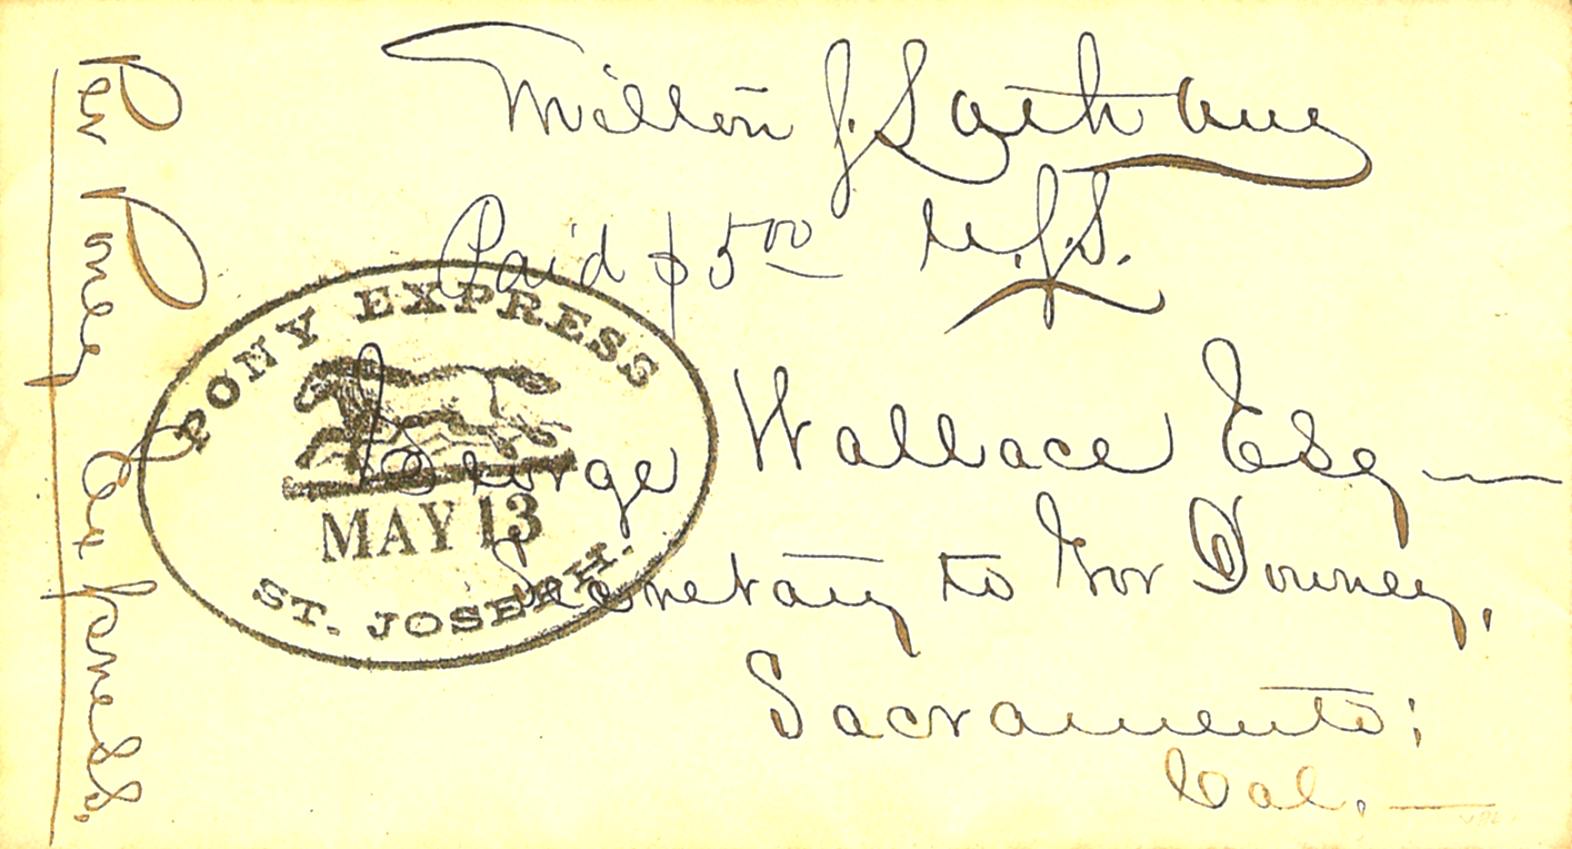 Milton J. Latham
Paid $5 00 M.J.L.
PONY EXPRESS
MAY 13
ST. JOSEPH.
George Wallace Esq
Secretary to Gov Downey,
Sacramento;
Cal.
Per Poney Express.